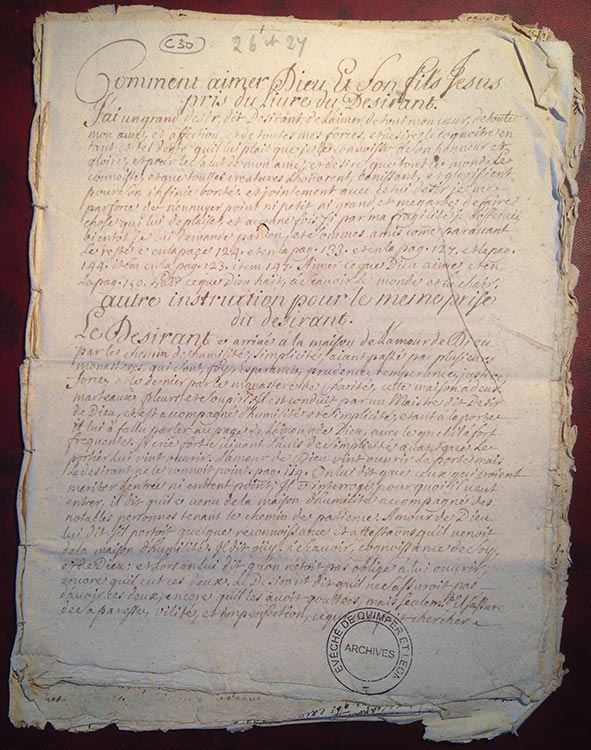 C30
26 et 27
Comment aimer Dieu Et Son fils Jesus
pris du livre du Desirant.
J'ai un grand desir, dit Desirant de l'aimer de tout mon cœur, de toute
mon ame, et affection, et de toutes mes forces, et desire le cognoitre en
tout et tel dorse quil lui plait que je le connoisse selon son honneur et
gloire, et pour le salut de mon ame, et desire, que tout le monde le
connoisse et que toutes creatures l'honorent, benissent, et glorifient
pour son infinie bonté, et jointement avec ce lui desir je me
parforce de point ni petit ni grand, et me garder de faire
chose qui lui deplaise, et aucune fois si par ma fragilité je
bientot je lui demande pardon, et some amis come paravant
le reste en la page 124. et en la pag. 133. et en la pag. 127. et la pag.
144. item en la pag. 123. item 147. Aime ce que Dieu aime, et en
la pag. 150. ce que dieu hait, a scavoir le monde et la chair,
autre instruction pour le meme prise
du desirant.
Le Desirant est arrivé a la maison de l'amour de Dieu
par le chemin de humilité, simplicité, aiant passé par plusieurs
monasteres qui sont foy, esperance, prudence, temperance, justice
force et le dernier par le monastere de charité, cette maison a deux
marteaux pleurs, et soupirs. Il est conduit par un Maistre dit Desir
de Dieu, et est accompagné d'humilité et simplicité, etant a la porte
il lui a fallu parler au page de l'amour de Dieu, avec le quel il a fort
frequenté. Mené fort le suivant l'avis de simplicité avant que le
portier lui vint ouvrir. L'amour de Dieu vint ouvrir la porte, mais
le desirant ne le connoit point, pag. 114. On lui dit que ceux
meriter l'entrée ni entrent point; Il interrogé pour quoi il veut
entrer, il dit quil est venu de la maison d'humilité accompagné des
notables personnes tenant le chemin de patience. Amour de Dieu
lui dit, sil portoit quelque reconnoissance et attestaõns quil venoit
de la maison d'humilité. Il dit ouy, a scavoir, cõnoissance de soy,
et de Dieu: et lors on lui dit quon n'etoit pas obligé a lui ouvrir,
encore quil eut ces deux. Le Desirant dit quil ne s'assuroit pas
d'avoir ces deux, encore quil les avoit gouttées, mais seulemt. il s'assure
de sa paresse, vilité, et imperfection, chercher
EVÊCHÉ DE QUIMPER ET LEON
ARCHIVES